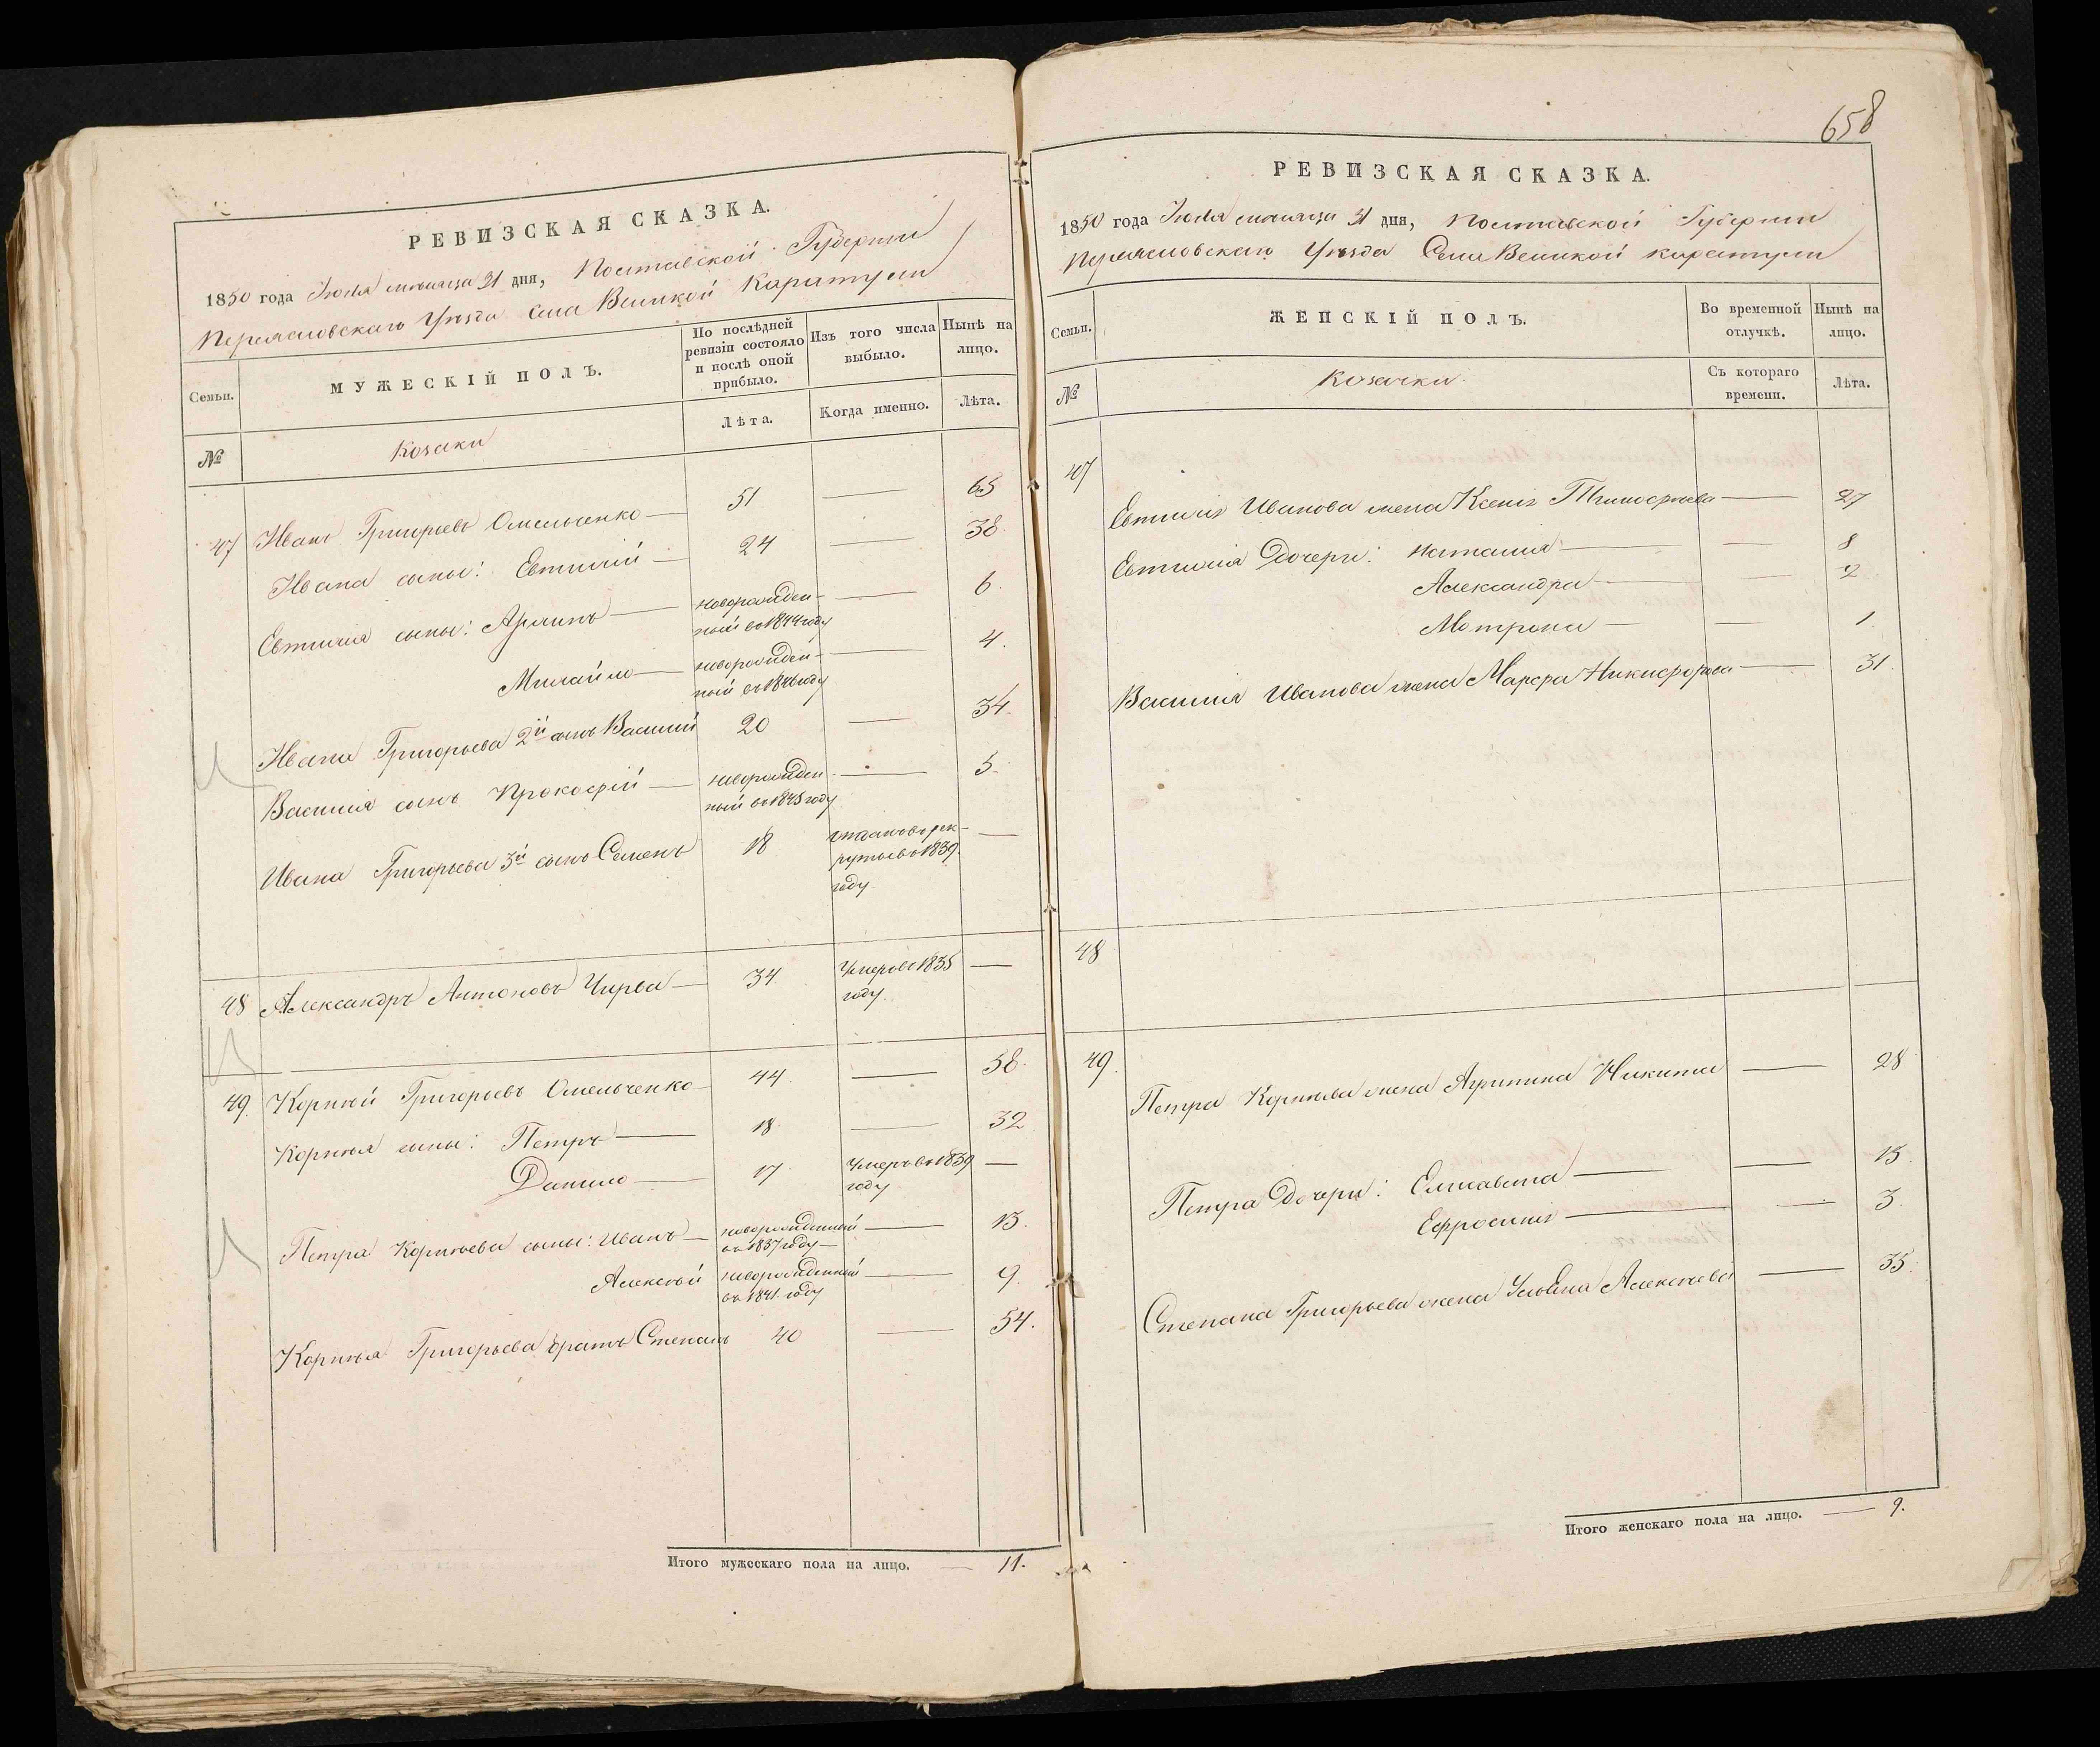 РЕВИЗСКАЯ СКАЗКА.
1850 года Іюля мѣсяца 31 дня, Полтавской Губерніи
Переясловскаго Уѣзда Села Великой Каратули
Семьи.
МУЖЕСКІЙ ПОЛЪ.
По послѣдней ревизіи состояло и послѣ оной прибыло.
Изъ того числа выбыло.
Нынѣ на лицо.
№
Козаки
Лѣта.
Когда именно.
Лѣта.
47 Иванъ Григорьевъ Омельченко 51 — 65
Ивана сыны: Евтихій 24 — 38.
Евтихія сыны: новорожден- — 6.
ный въ 1844 году
Михайло новорожден- — 4.
ный въ 1846 году
Ивана Григорьева 2й сынъ Василий 20 — 34.
Василія сынъ Прокофій новорожден- — 5.
ный въ 1845 году
Ивана Григорьева 3й сынъ Семенъ 18 отданъ въ рек- —
руты въ 1839.
году
48 Александръ Антоновъ Чирва 34 Умеръ въ 1835 —
году.
49. Корнѣй Григорьевъ Омельченко 44. — 58.
Корнѣя сыны: Петръ 18 — 32
Данило 17. Умеръ въ 1839 —
году
Петра Корнѣева сыны: Иванъ новорожденный — 13.
въ 1837 году
Алексѣй новорожденный — 9.
въ 1841. году
Корнѣя Григорьева братъ Степанъ 40 — 54.
Итого мужескаго пола на лицо. — 11.
658
РЕВИЗСКАЯ СКАЗКА.
1850 года Іюля мѣсяца 31 дня, Полтавской Губерніи
Переясловскаго Уѣзда Села Великой Каратули
Семьи.
ЖЕНСКІЙ ПОЛЪ.
Во временной отлучкѣ.
Нынѣ на лицо.
№
Козачки.
Съ котораго времени.
Лѣта.
47
Евтихія Иванова жена Ксенія Тимофѣева — 27
Евтихія Дочери: Наталия — 8
Александра — 2
Мотрона — 1
Василия Иванова жена Марфа Никифорова — 31.
48
49.
Петра Корнѣева жена Агрипина Никита — 28
Петра Дочери: Елисавета — 13.
Ефросинія — 3.
Степана Григорьева жена Ульяна Алексѣева — 35.
Итого женскаго пола на лицо. — 9.